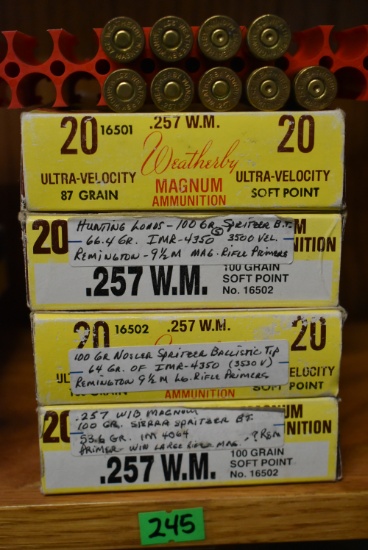 20 16501 .257 W.M. 20
Weatherby
ULTRA-VELOCITY MAGNUM ULTRA-VELOCITY
87 GRAIN AMMUNITION SOFT POINT
20 M
NITION
HUNTING LOADS - 100 GR. SPRITZER B.T.
66.4 GR. IMR-4350 3500 VEL.
REMINGTON - 9½ M MAG. RIFLE PRIMERS
.257 W.M. 100 GRAIN
SOFT POINT
No. 16502
20 16502 .257 W.M. 20
100 GR NOSLER SPRITZER BALLISTIC TIP
64 GR. OF IMR-4350 (3530 V)
REMINGTON 9½ M LG. RIFLE PRIMERS
LOCITY
AMMUNITION SOFT POINT
20 MAGNUM
NITION
.257 WIB MAGNUM
100 GR. SIERRA SPRITZER BT.
53.6 GR. IM 4064
PRIMER - WIN LARGE RIFLE MAG.
.257 W.M. 100 GRAIN
SOFT POINT
No. 16502
245